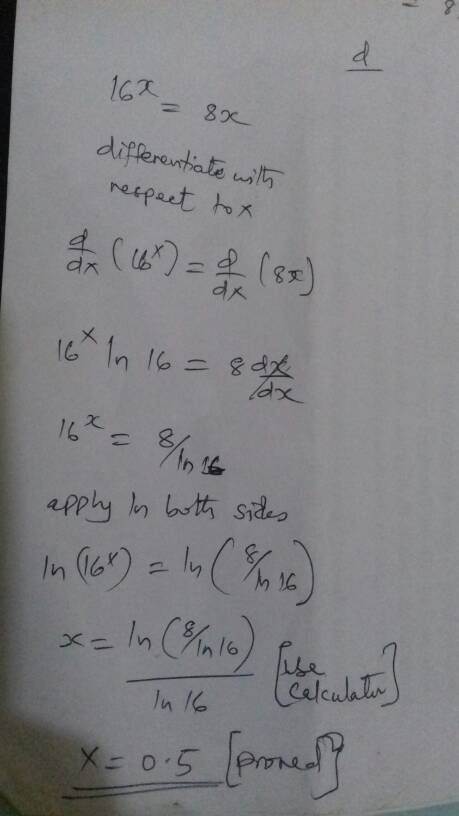 = 8
d
16^x = 8x
differentiate with
respect to x
d/dx (16^x) = d/dx (8x)
16^x ln 16 = 8 dx/dx
16^x = 8/ln 16
apply ln both sides
ln (16^x) = ln (8/ln 16)
x = ln (8/ln 16) / ln 16 [use calculator]
x = 0.5 [proved]